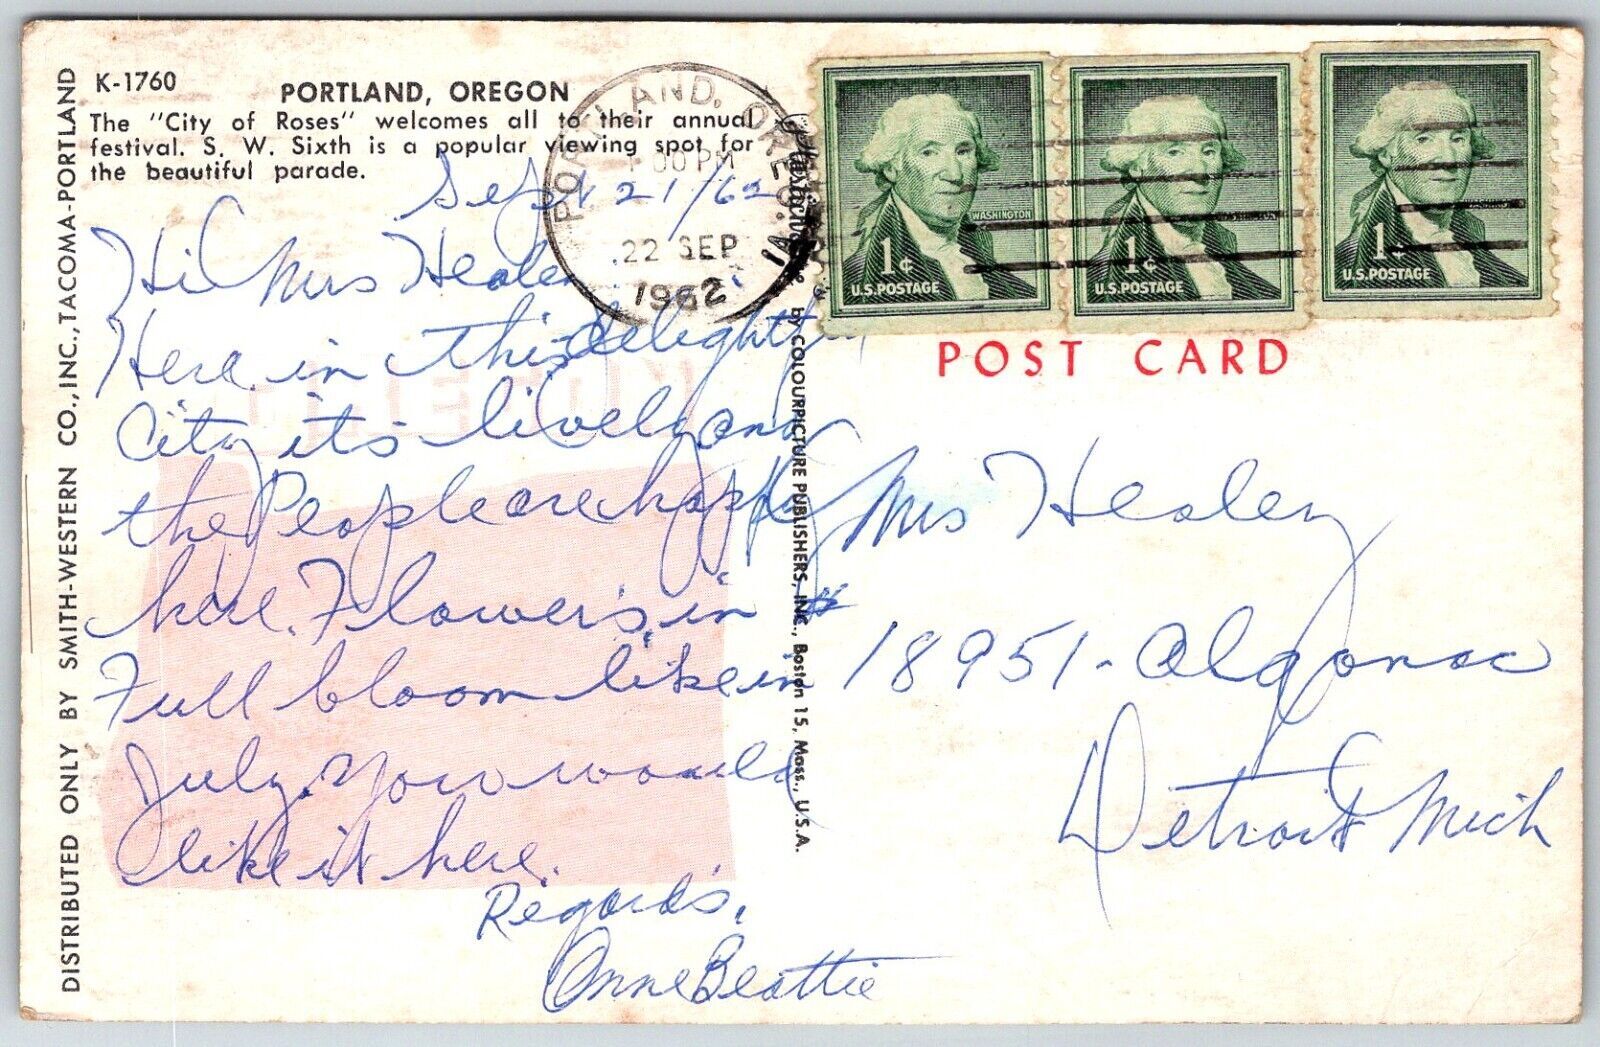 K-1760
PORTLAND, OREGON
The "City of Roses" welcomes all to their annual
festival. S. W. Sixth is a popular viewing spot for
the beautiful parade.
DISTRIBUTED ONLY BY SMITH-WESTERN CO., INC., TACOMA-PORTLAND
Sept. 21/62
Hi Mrs Healey
Here in this delightful
City its lively and
the People are happy
here. Flowers in
Full bloom like in
July. You would
like it here.
Regards,
Anne Beattie
PORTLAND, OREG.
00 PM
22 SEP
1962
1A
by COLOURPICTURE PUBLISHERS, INC., Boston 15, Mass., U.S.A.
WASHINGTON
1¢
U.S. POSTAGE
1¢
U.S. POSTAGE
1¢
U.S. POSTAGE
POST CARD
Mrs Healey
18951 - Algonac
Detroit Mich